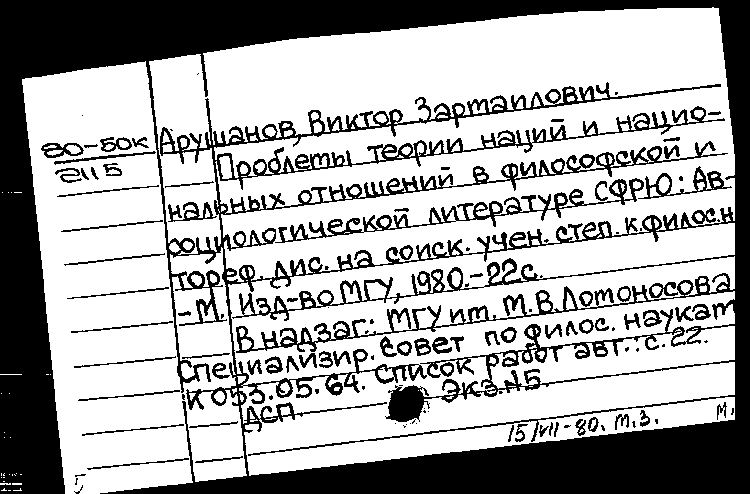 80-50к
2115
Арушанов, Виктор Зартаилович.
Проблемы теории наций и нацио-
нальных отношений в философской и
социологической литературе СФРЮ: Ав-
тореф. дис. на соиск. учен. степ. к.филос.н
-М.: Изд-во МГУ, 1980.-22с.
В надзаг.: МГУ им. М.В.Ломоносова
Специализир. совет по филос. наукам
К 053.05.64. Список работ авт.: с.22.
ДСП. Экз.№5.
15/VII-80. М.З. М.